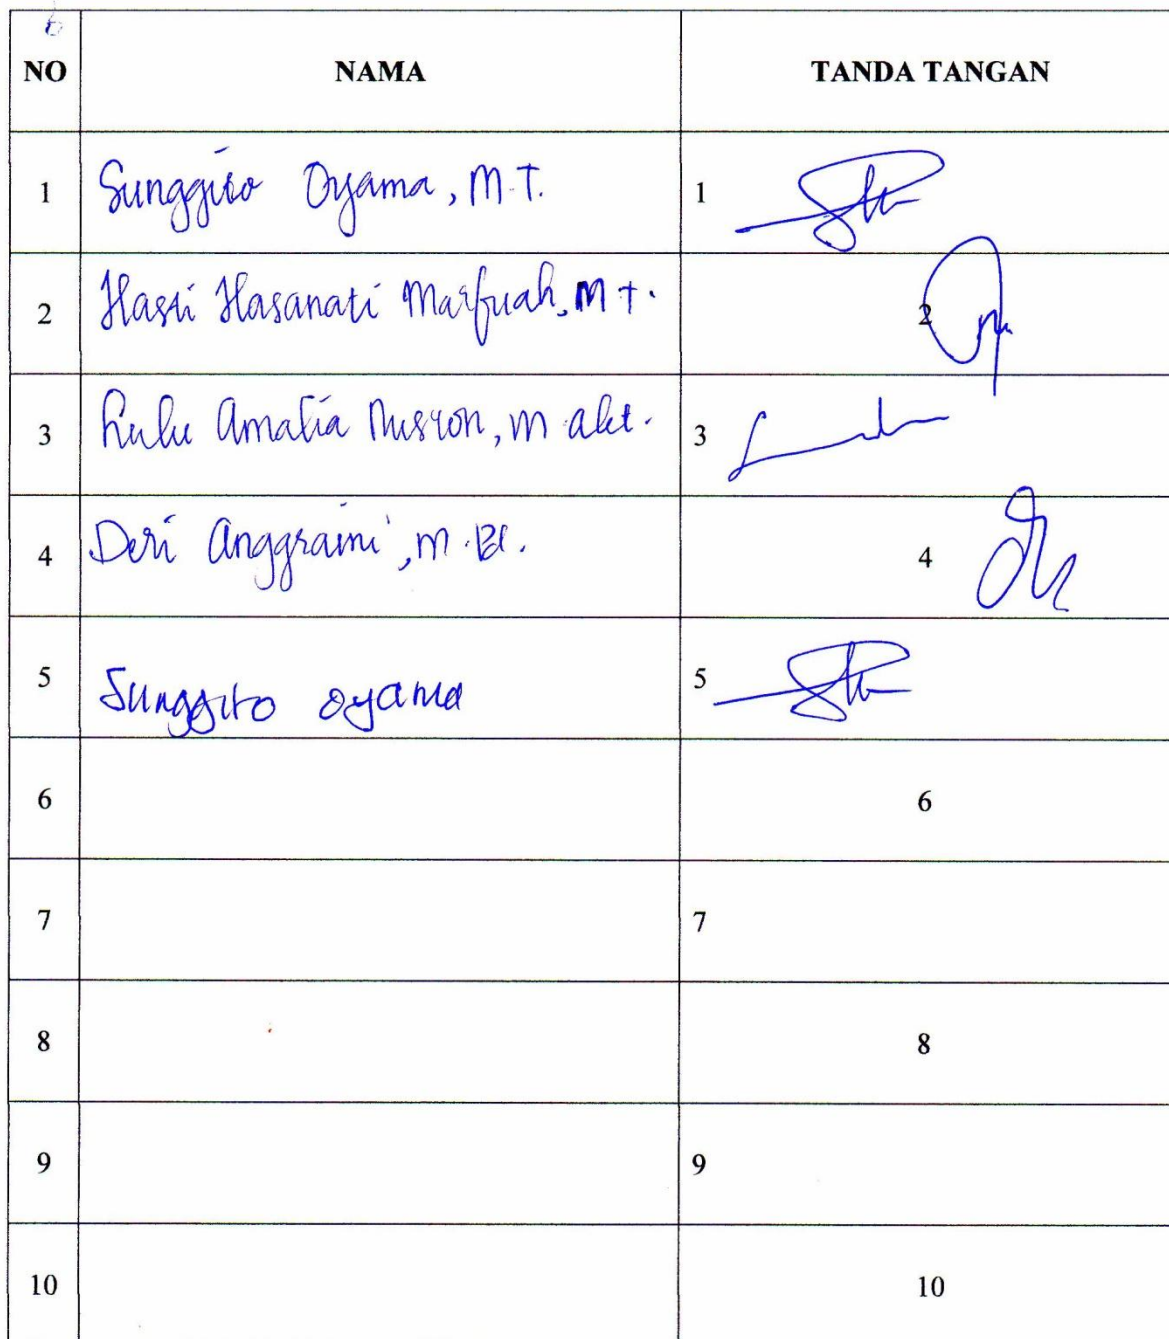 NO NAMA TANDA TANGAN
1 Sunggito Oyama, M.T. 1
2 Hasti Hasanati Marfuah, M.T. 2
3 Lulu Amalia Nusron, M.Akt. 3
4 Deri Anggraini, M. 4
5 Sunggito Oyama 5
6 6
7 7
8 8
9 9
10 10